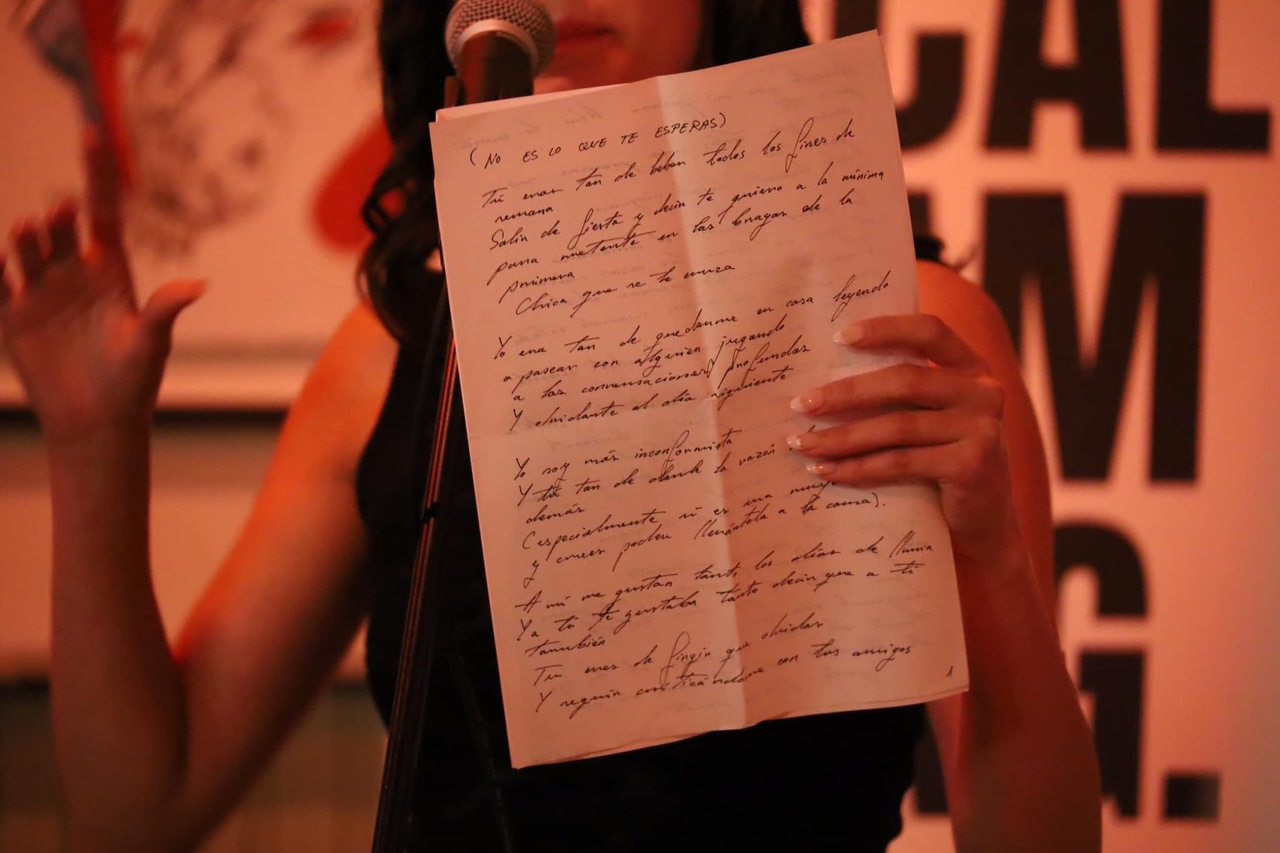 (NO ES LO QUE TE ESPERAS)
Tú eras tan de beber todos los fines de
semana
Salir de fiesta y decir te quiero a la mínima
para meterte en las bragas de la
primera
Chica que se te cruza
Yo era tan de quedarme en casa leyendo
o pasear con alguien jugando
a las conversaciones profundas
Y olvidarte al día siguiente
Yo soy más inconformista
Y tú tan de darle la razón
demás
(especialmente si es una
y crees poder llevártela a la cama).
A mí me gustan tanto los días de lluvia
Y a tú te gustaba tanto decir que a ti
también
Tu eres de fingir que olvidas
Y seguir criticándome con tus amigos
1
CAL
M
G.